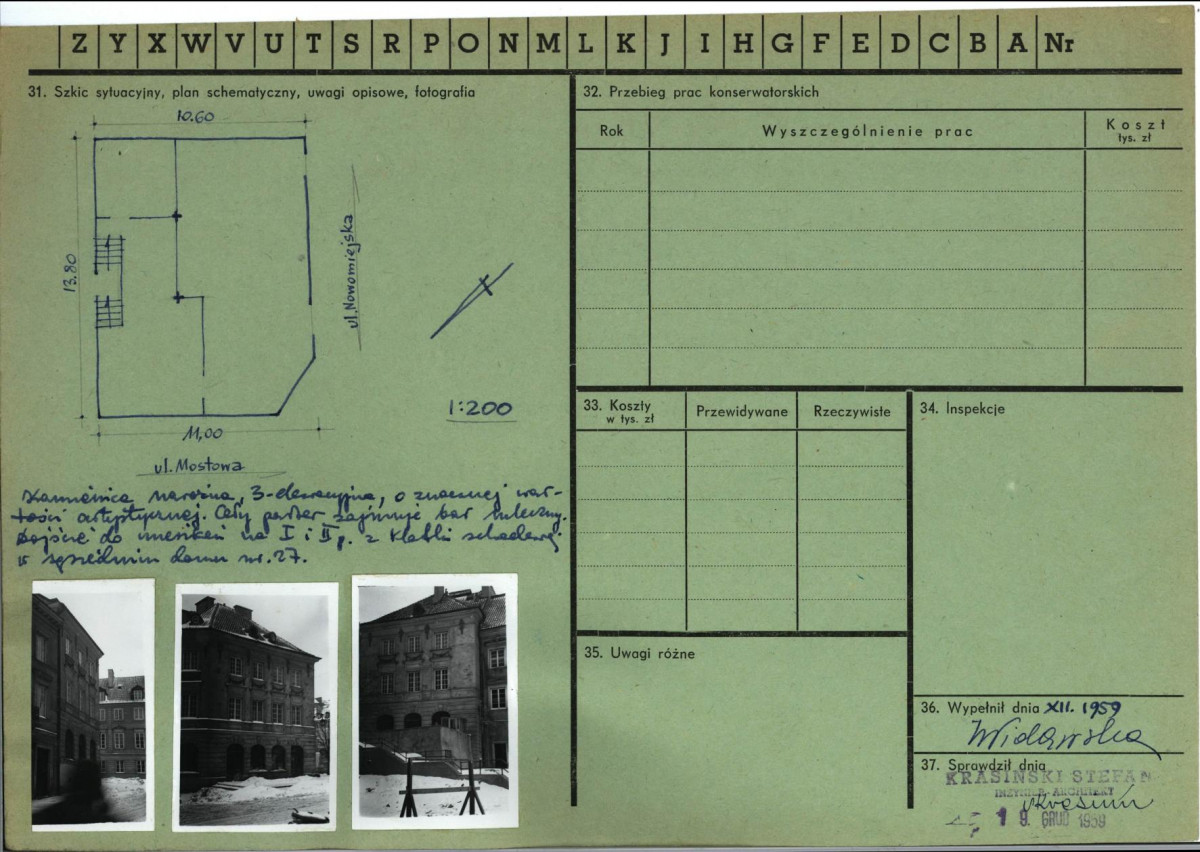 Z Y X W V U T S R P O N M L K J I H G F E D C B A Nr
31. Szkic sytuacyjny, plan schematyczny, uwagi opisowe, fotografia
10.60
13.80
ul. Nowomiejska
1:200
11,00
ul. Mostowa
Kamienica narożna, 3-elewacyjna, o znacznej war-
tości artystycznej. Cały parter zajmuje bar mleczny.
Wejście do mieszkań na I i II p. z klatki schodowej
w sąsiednim domu nr. 27.
32. Przebieg prac konserwatorskich
Rok
Wyszczególnienie prac
Koszt
tys. zł
33. Koszty
w tys. zł
Przewidywane
Rzeczywiste
34. Inspekcje
35. Uwagi różne
36. Wypełnił dnia XII. 1959
Widawska
37. Sprawdził dnia
KRASIŃSKI STEFAN
INŻYNIER-ARCHITEKT
19. GRUD 1959